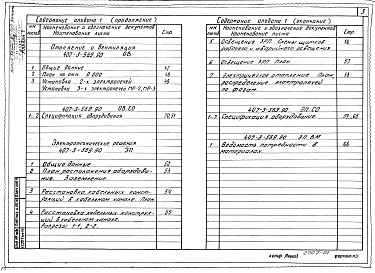 3
Содержание альбома 1 (продолжение)
Наименование и обозначение документов
Наименование листа
Стр.
Отопление и вентиляция
407-3-569.90 ОВ
1 Общие данные 47
2 План на отм. 0.000 48
3 Установка 2-х электропечей
Установка 3-х электропечей
407-3-569.90 ОВ.СО
1, 2 Спецификация оборудования 50,51
Электротехнические решения
407-3-569.90 ЭП
1 Общие данные 52
2 План расположения оборудова-
ния. Заземление. 53
3 Расстановка кабельных конст-
рукций в кабельном канале. План 54
4 Расстановка кабельных конструк-
ций в кабельном канале.
Разрезы 1-1, 2-2 55
Содержание альбома 1 (окончание)
Наименование и обозначение документов
Наименование листа
Стр.
5 Освещение ЗРП. Схемы щитков
рабочего и аварийного освещения. 56
6 Освещение ЗРП. План 57
7 Электрическое отопление. План,
распределение электропечей
по фазам. 58
407-3-569.90 ЭП.СО
Спецификация оборудования.
407-3-569.90 ЭП.ВМ
Ведомость потребности в
материалах. 66
формат А3